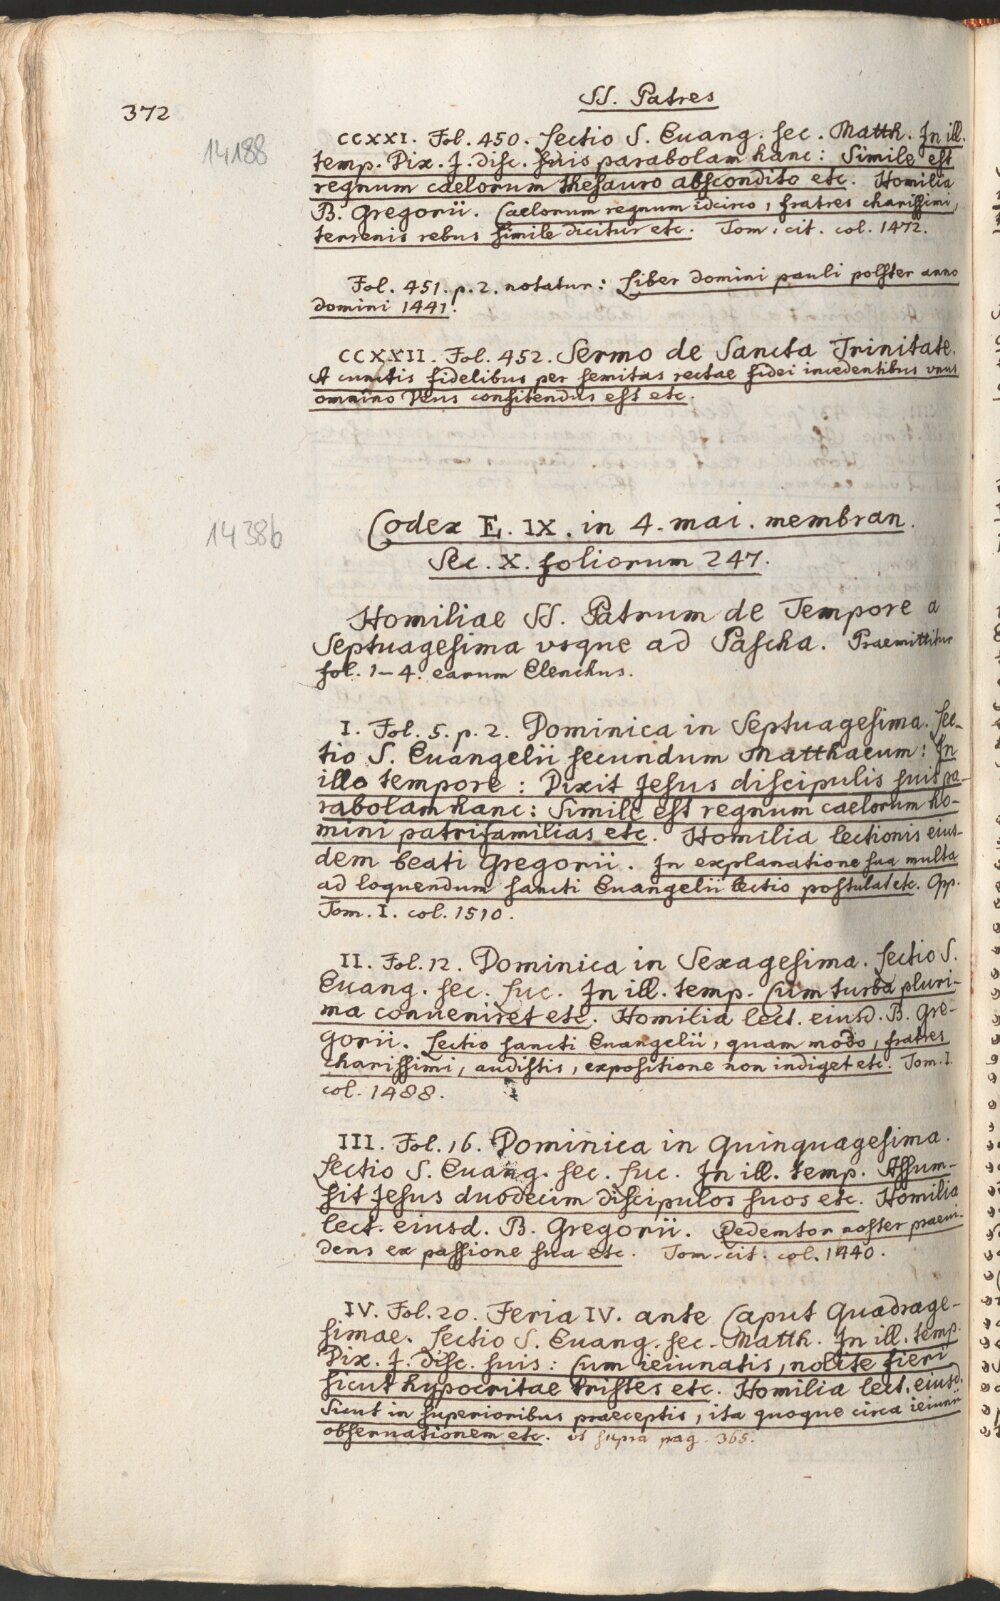 372
SS. Patres
14188
CCXXI. Fol. 450. Lectio S. Euang. sec. Matth. In ill.
temp. Dix. J. disc. suis parabolam hanc: Simile est
regnum caelorum thesauro abscondito etc. Homilia
B. Gregorii. Caelorum regnum idcirco, fratres charissimi,
terrenis rebus simile dicitur etc. Tom. cit. col. 1472.
Fol. 451. p. 2. notatur: Liber domini pauli polster anno
domini 1441.
CCXXII. Fol. 452. Sermo de Sancta Trinitate.
A cunctis fidelibus per semitas rectae fidei incedentibus vnus
omnino Deus confitendus est etc.
14386
Codex E. IX. in 4. mai. membran.
Sec. X. foliorum 247.
Homiliae SS. Patrum de Tempore a
Septuagesima vsque ad Pascha. Praemittitur
fol. 1-4. earum Elenchus.
I. Fol. 5. p. 2. Dominica in Septuagesima. Lec-
tio S. Euangelii secundum Matthaeum: In
illo tempore: Dixit Jesus discipulis suis pa-
rabolam hanc: Simile est regnum caelorum ho-
mini patrifamilias etc. Homilia lectionis eius-
dem beati Gregorii. In explanatione sua multa
ad loquendum sancti Euangelii lectio postulat etc. Opp.
Tom. I. col. 1510.
II. Fol. 12. Dominica in Sexagesima. Lectio S.
Euang. sec. Luc. In ill. temp. Cum turba pluri-
ma conueniret etc. Homilia lect. eiusd. B. Gre-
gorii. Lectio sancti Euangelii, quam modo, fratres
charissimi, audistis, expositione non indiget etc. Tom. I.
col. 1488.
III. Fol. 16. Dominica in Quinquagesima.
Lectio S. Euang. sec. Luc. In ill. temp. Assum-
sit Jesus duodecim discipulos suos etc. Homilia
lect. eiusd. B. Gregorii. Redemtor noster praeui-
dens ex passione sua etc. Tom. cit. col. 1440.
IV. Fol. 20. Feria IV. ante Caput Quadrage-
simae. Lectio S. Euang. sec. Matth. In ill. temp.
Dix. J. disc. suis: Cum ieiunatis, nolite fieri
sicut hypocritae tristes etc. Homilia lect. eiusd.
Sicut in superioribus praeceptis, ita quoque circa ieiunii
obseruationem etc. vt supra pag. 365.